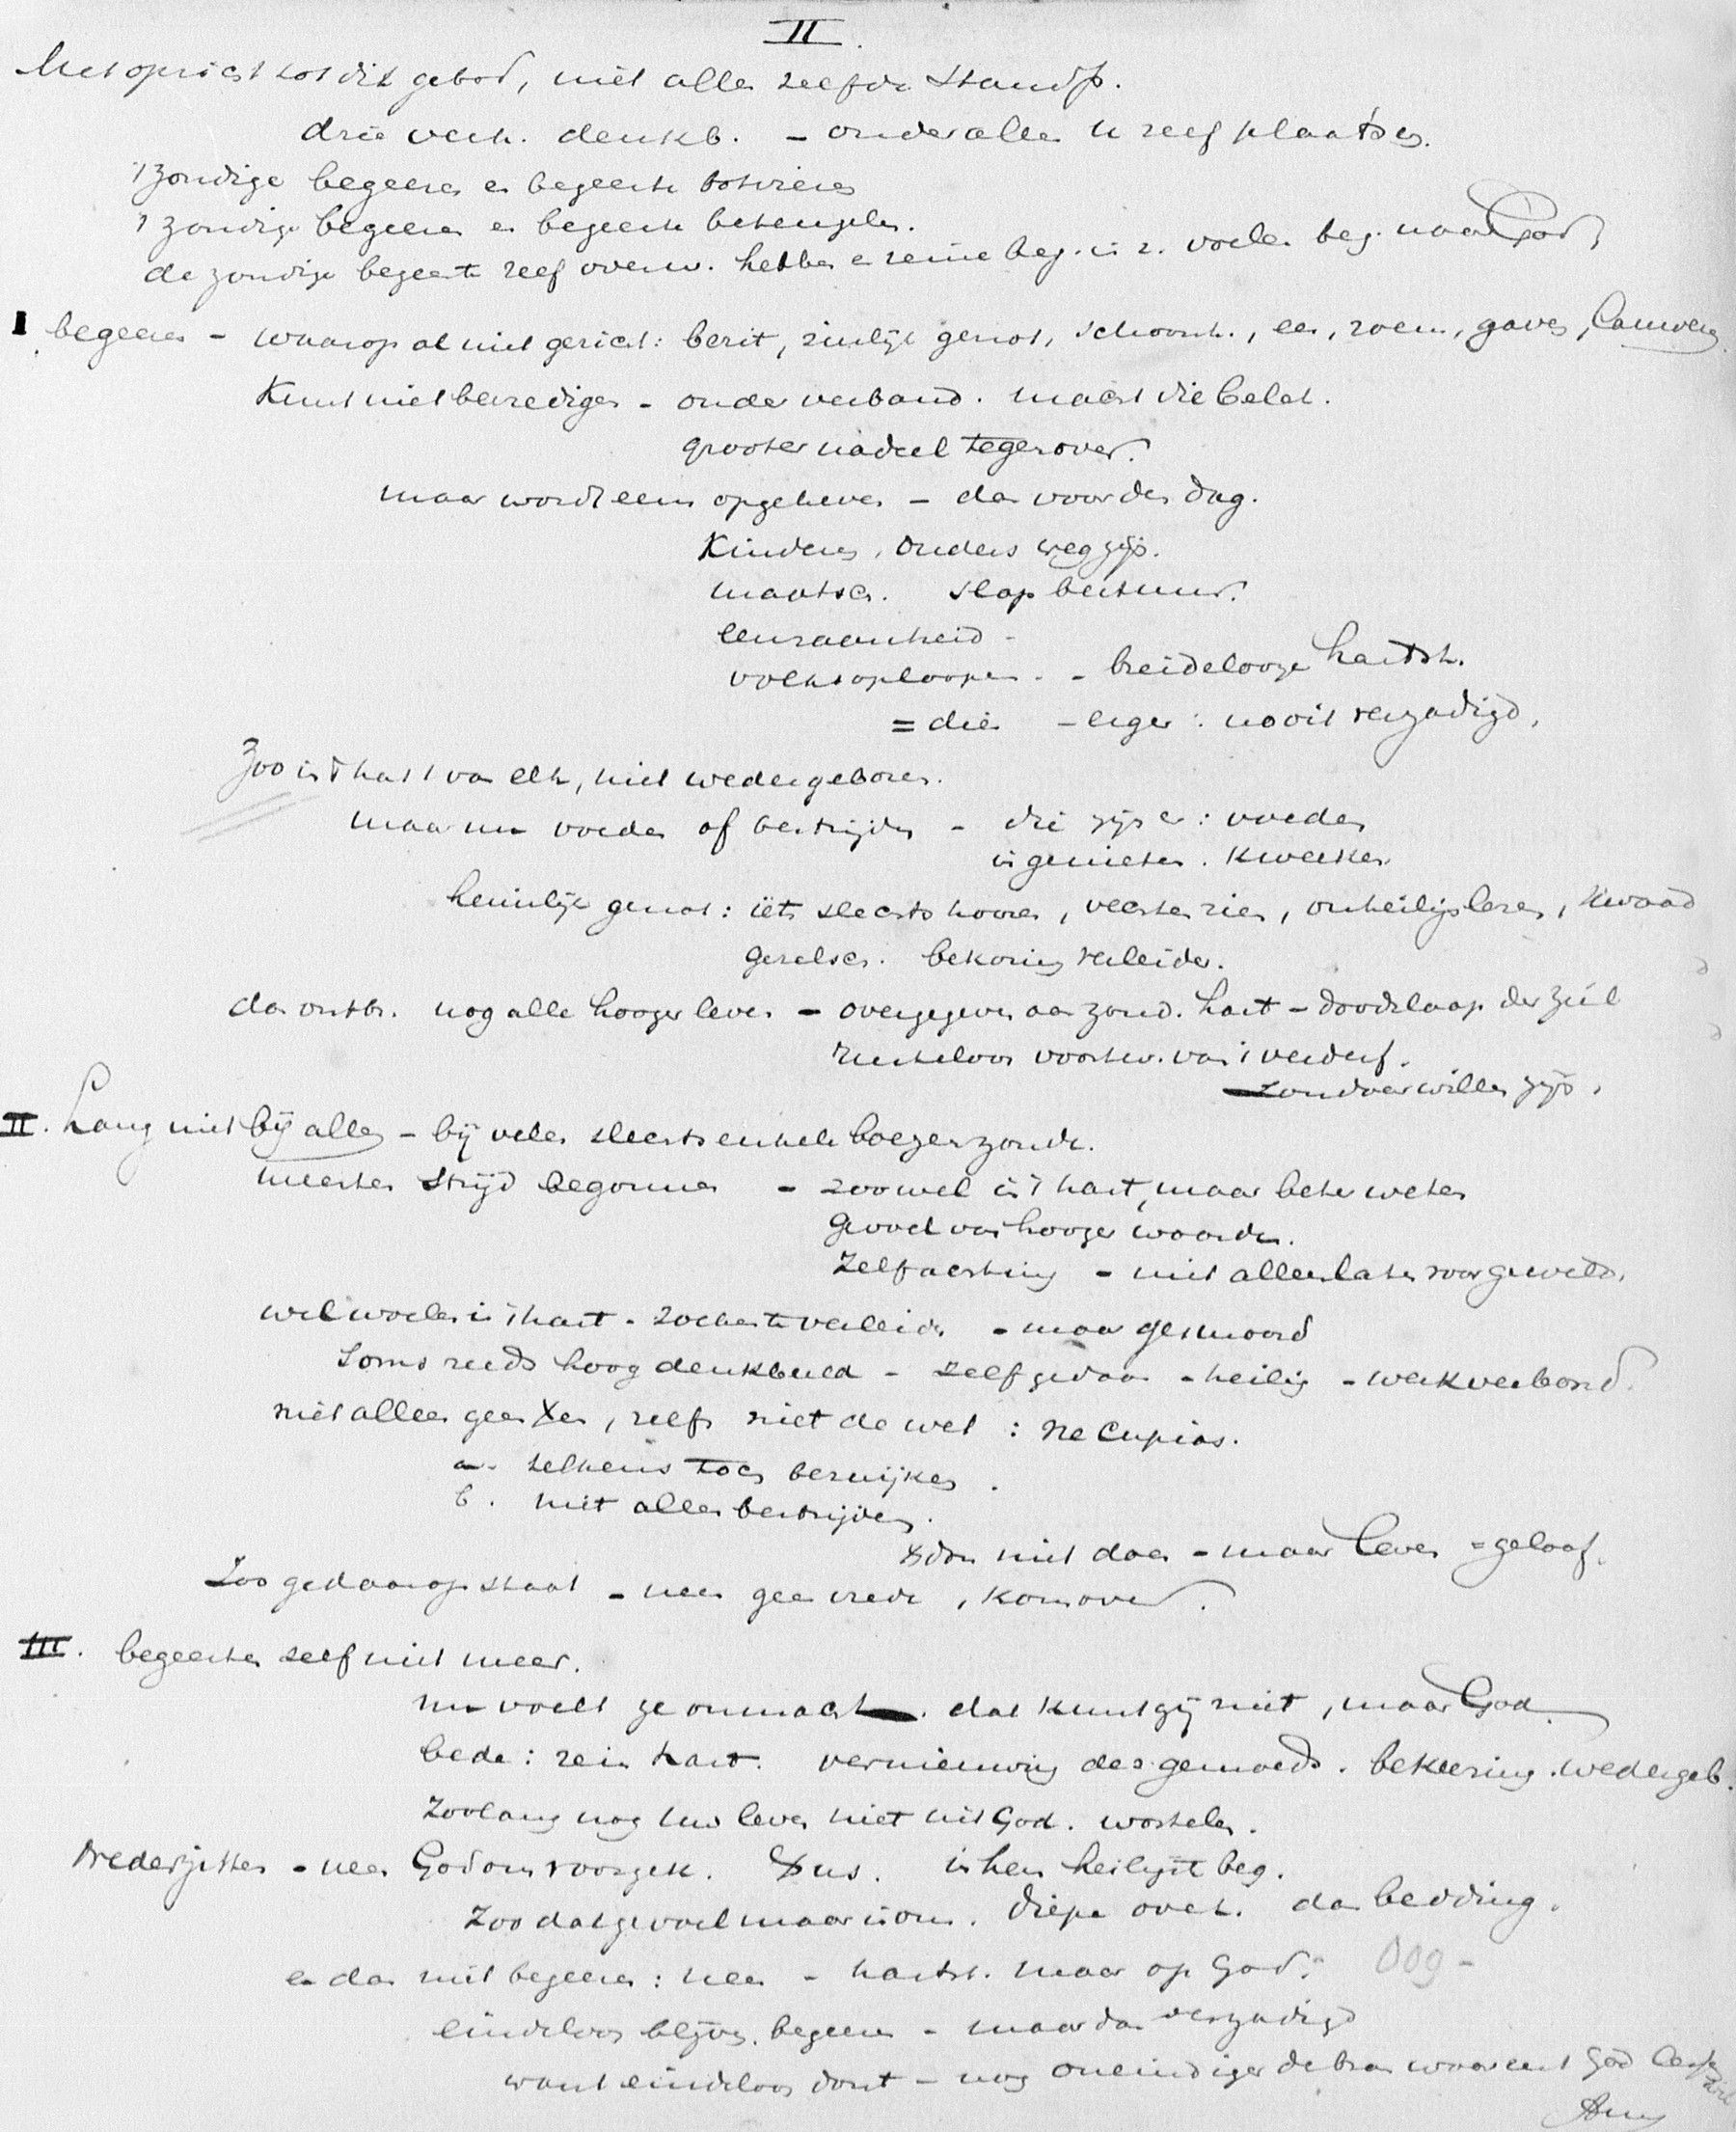 II.
Met opzicht tot dit gebod, niet alle zelfde standp.
drie verh. denkb. - onder alle u zelf plaatsen.
1) zondige begeeren en begeerte botvieren
1 zondige begeeren en begeerte beteugelen.
de zondige begeerte zelf overw. hebben en reine beg. in z. voelen beg. naar God
I begeeren - waarop al niet gericht: bezit, zinlijk genot, schoonh., eer, roem, gaven, lauweren
Kunt niet bevredigen - onder verband. macht die belet.
grooter nadeel tegenover.
maar wordt eens opgeheven - dan voor den dag.
Kinderen, ouders weg zijn.
maatsch. slap bestuur.
eenzaamheid -
volksoploopen - - breidelooze hartst.
= dier - erger: nooit verzadigd,
Zoo in 't hart van elk, niet wedergeboren.
maar nu voeden of bestrijden - die zijn er: voeden
in genieten. kweeken.
heimlijk genot: iets slechts hooren, vechten zien, onheiligs lezen, kwaad
gezelsch. bekoring verleiden.
dan ontbr. nog alle hooger leven - overgegeven aan zond. hart - doodslaap der ziel
rusteloos voortw. van 't verderf.
zondaar willen zijn.
II. Lang niet bij allen - bij velen slechts enkele boezemzonde.
meesten strijd begonnen - zoowel in 't hart, maar beter weten
gevoel van hooger waarde.
Zelfachting - niet alleen laten voor geweld.
wel woelen in 't hart - zoeken te verleiden - maar gesmoord
Soms reeds hoog denkbeeld - zelf gedaan - heilig - werkverbond.
niet alleen geen , zelfs niet de wet: ne cupias.
a. telkens toch bezwijken.
b. niet alles bestrijden.
niet doen - maar leven = geloof.
Zoo gedaan op staat - neen geen vrede, kom over.
III. begeerte zelf niet meer.
nu voelt ge onmacht. dat kunt gij niet, maar God
bede: rein hart. vernieuwing des gemoeds. bekeering. wedergeb.
Zoolang nog uw leven niet uit God. worstelen.
nederzitten - neen God ons voorgek. Xus. in hem heiligste beg.
Zoo dat gevoel maar in ons. diepe overt. dan bedding.
en dan niet begeeren: neen - hartst. maar op God. Oog -
eindeloos blijven begeeren - maar dan verzadigd
want eindeloos dorst - nog oneindiger de bron waaruit God
Amen